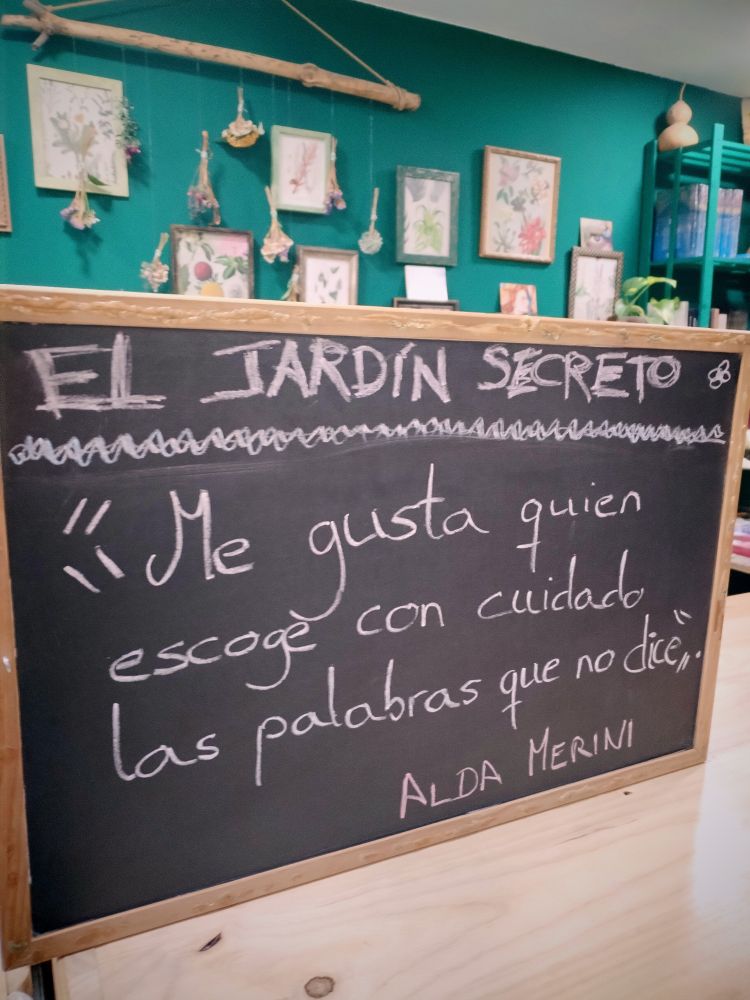 EL JARDÍN SECRETO
"Me gusta quien
escoge con cuidado
las palabras que no dice".
ALDA MERINI